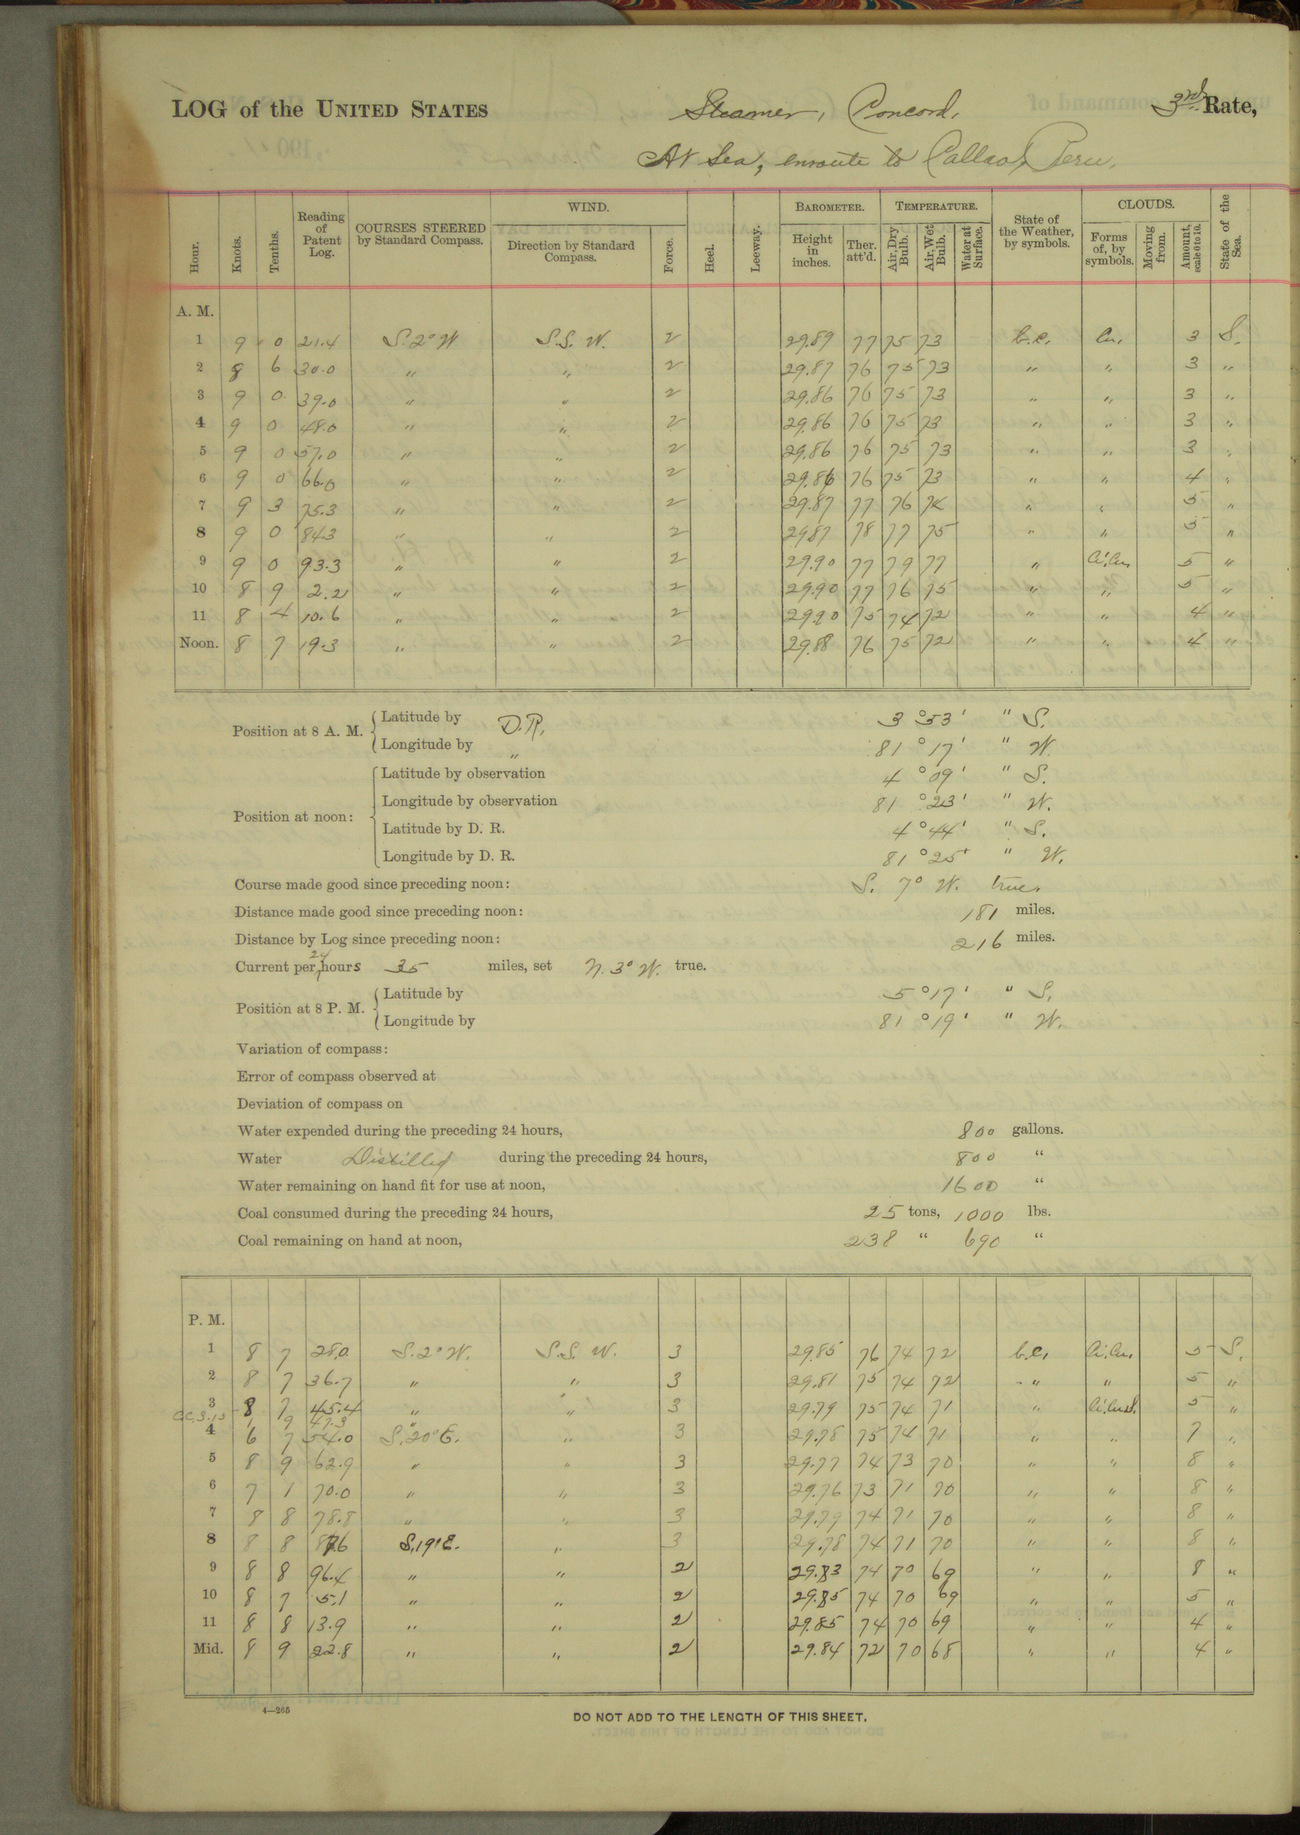 LOG of the UNITED STATES Steamer, Concord, 3rd Rate,
At Sea, enroute to Callao, Peru.
Hour. Knots. Tenths. Reading of Patent Log. COURSES STEERED by Standard Compass. WIND. Direction by Standard Compass. Force. Heel. Leeway. BAROMETER. Height in inches. Ther. att'd. TEMPERATURE. Air, Dry Bulb. Air, Wet Bulb. Water at Surface. State of the Weather, by symbols. CLOUDS. Forms of, by symbols. Moving from. Amount, scale 0 to 10. State of the Sea.
A. M.
1 9 0 21.4 S. 2° W S.S. W. 2 29.89 77 75 73 b.c. Cu. 3 S.
2 8 6 30.0 " " 2 29.87 76 75 73 " " 3 "
3 9 0 39.0 " " 2 29.86 76 75 73 " " 3 "
4 9 0 48.0 " " 2 29.86 76 75 73 " " 3 "
5 9 0 57.0 " " 2 29.86 76 75 73 " " 3 "
6 9 0 66.0 " " 2 29.86 76 75 73 " " 4 "
7 9 3 75.3 " " 2 29.87 77 76 74 " " 5 "
8 9 0 84.3 " " 2 29.87 78 77 75 " " 5 "
9 9 0 93.3 " " 2 29.90 77 79 77 " Ci.Cu. 5 "
10 8 9 2.2 " " 2 29.90 77 76 75 " " 5 "
11 8 4 10.6 " " 2 29.90 75 74 72 " " 4 "
Noon. 8 7 19.3 " " 2 29.88 76 75 72 " " 4 "
Position at 8 A. M. Latitude by D.R. 3 ° 53 ' " S.
Longitude by " 81 ° 17 ' " W.
Position at noon: Latitude by observation 4 ° 09 ' " S.
Longitude by observation 81 ° 23 ' " W.
Latitude by D. R. 4 ° 44 ' " S.
Longitude by D. R. 81 ° 25 ' " W.
Course made good since preceding noon: S. 7° W. true.
Distance made good since preceding noon: 181 miles.
Distance by Log since preceding noon: 216 miles.
Current per 24 hours 35 miles, set N. 3° W. true.
Position at 8 P. M. Latitude by 5 ° 17 ' " S.
Longitude by 81 ° 19 ' " W.
Variation of compass:
Error of compass observed at
Deviation of compass on
Water expended during the preceding 24 hours, 800 gallons.
Water Distilled during the preceding 24 hours, 800 "
Water remaining on hand fit for use at noon, 1600 "
Coal consumed during the preceding 24 hours, 25 tons, 1000 lbs.
Coal remaining on hand at noon, 238 " 690 "
P. M.
1 8 7 28.0 S. 2° W. S.S. W. 3 29.85 76 74 72 b.c. Ci.Cu. 5 S.
2 8 7 36.7 " " 3 29.81 75 74 72 " " 5 "
3 8 7 45.4 " " 3 29.79 75 74 71 " Ci.Cu.S. 5 "
C.C. 3.15 1 9 47.3 "
4 6 7 54.0 S. 20° E. " 3 29.78 75 74 71 " " 7 "
5 8 9 62.9 " " 3 29.77 74 73 70 " " 8 "
6 7 1 70.0 " " 3 29.76 73 71 70 " " 8 "
7 8 8 78.8 " " 3 29.79 74 71 70 " " 8 "
8 8 8 87.6 S. 19° E. " 3 29.78 74 71 70 " " 8 "
9 8 8 96.4 " " 2 29.83 74 70 69 " " 8 "
10 8 7 5.1 " " 2 29.85 74 70 69 " " 5 "
11 8 8 13.9 " " 2 29.85 74 70 69 " " 4 "
Mid. 8 9 22.8 " " 2 29.84 72 70 68 " " 4 "
4—265
DO NOT ADD TO THE LENGTH OF THIS SHEET.